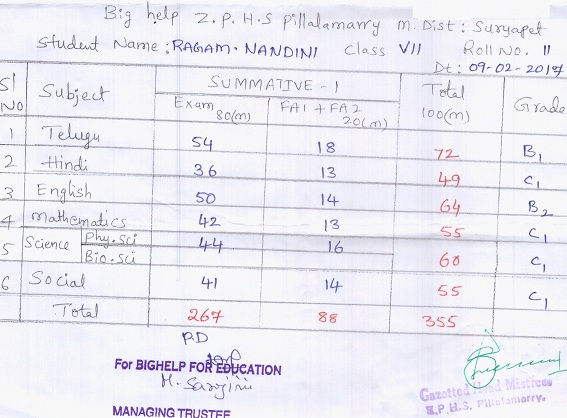 Big help Z.P.H.S pillalamarry m. Dist: Suryapet
Student Name: RAGAM. NANDINI Class VII Roll No. 11
Dt: 09-02-2017
Sl No Subject SUMMATIVE - 1 Total 100(m) Grade
Exam 80(m) FA1 + FA2 20(m)
1 Telugu 54 18 72 B1
2 Hindi 36 13 49 C1
3 English 50 14 64 B2
4 mathematics 42 13 55 C1
5 Science Phy.sci 44 16 60 C1
Bio.sci
6 Social 41 14 55 C1
Total 267 88 355
For BIGHELP FOR EDUCATION
M. Sarojini
MANAGING TRUSTEE
Gazetted Head Mistress
Z.P.H.S. Pillalamarry.